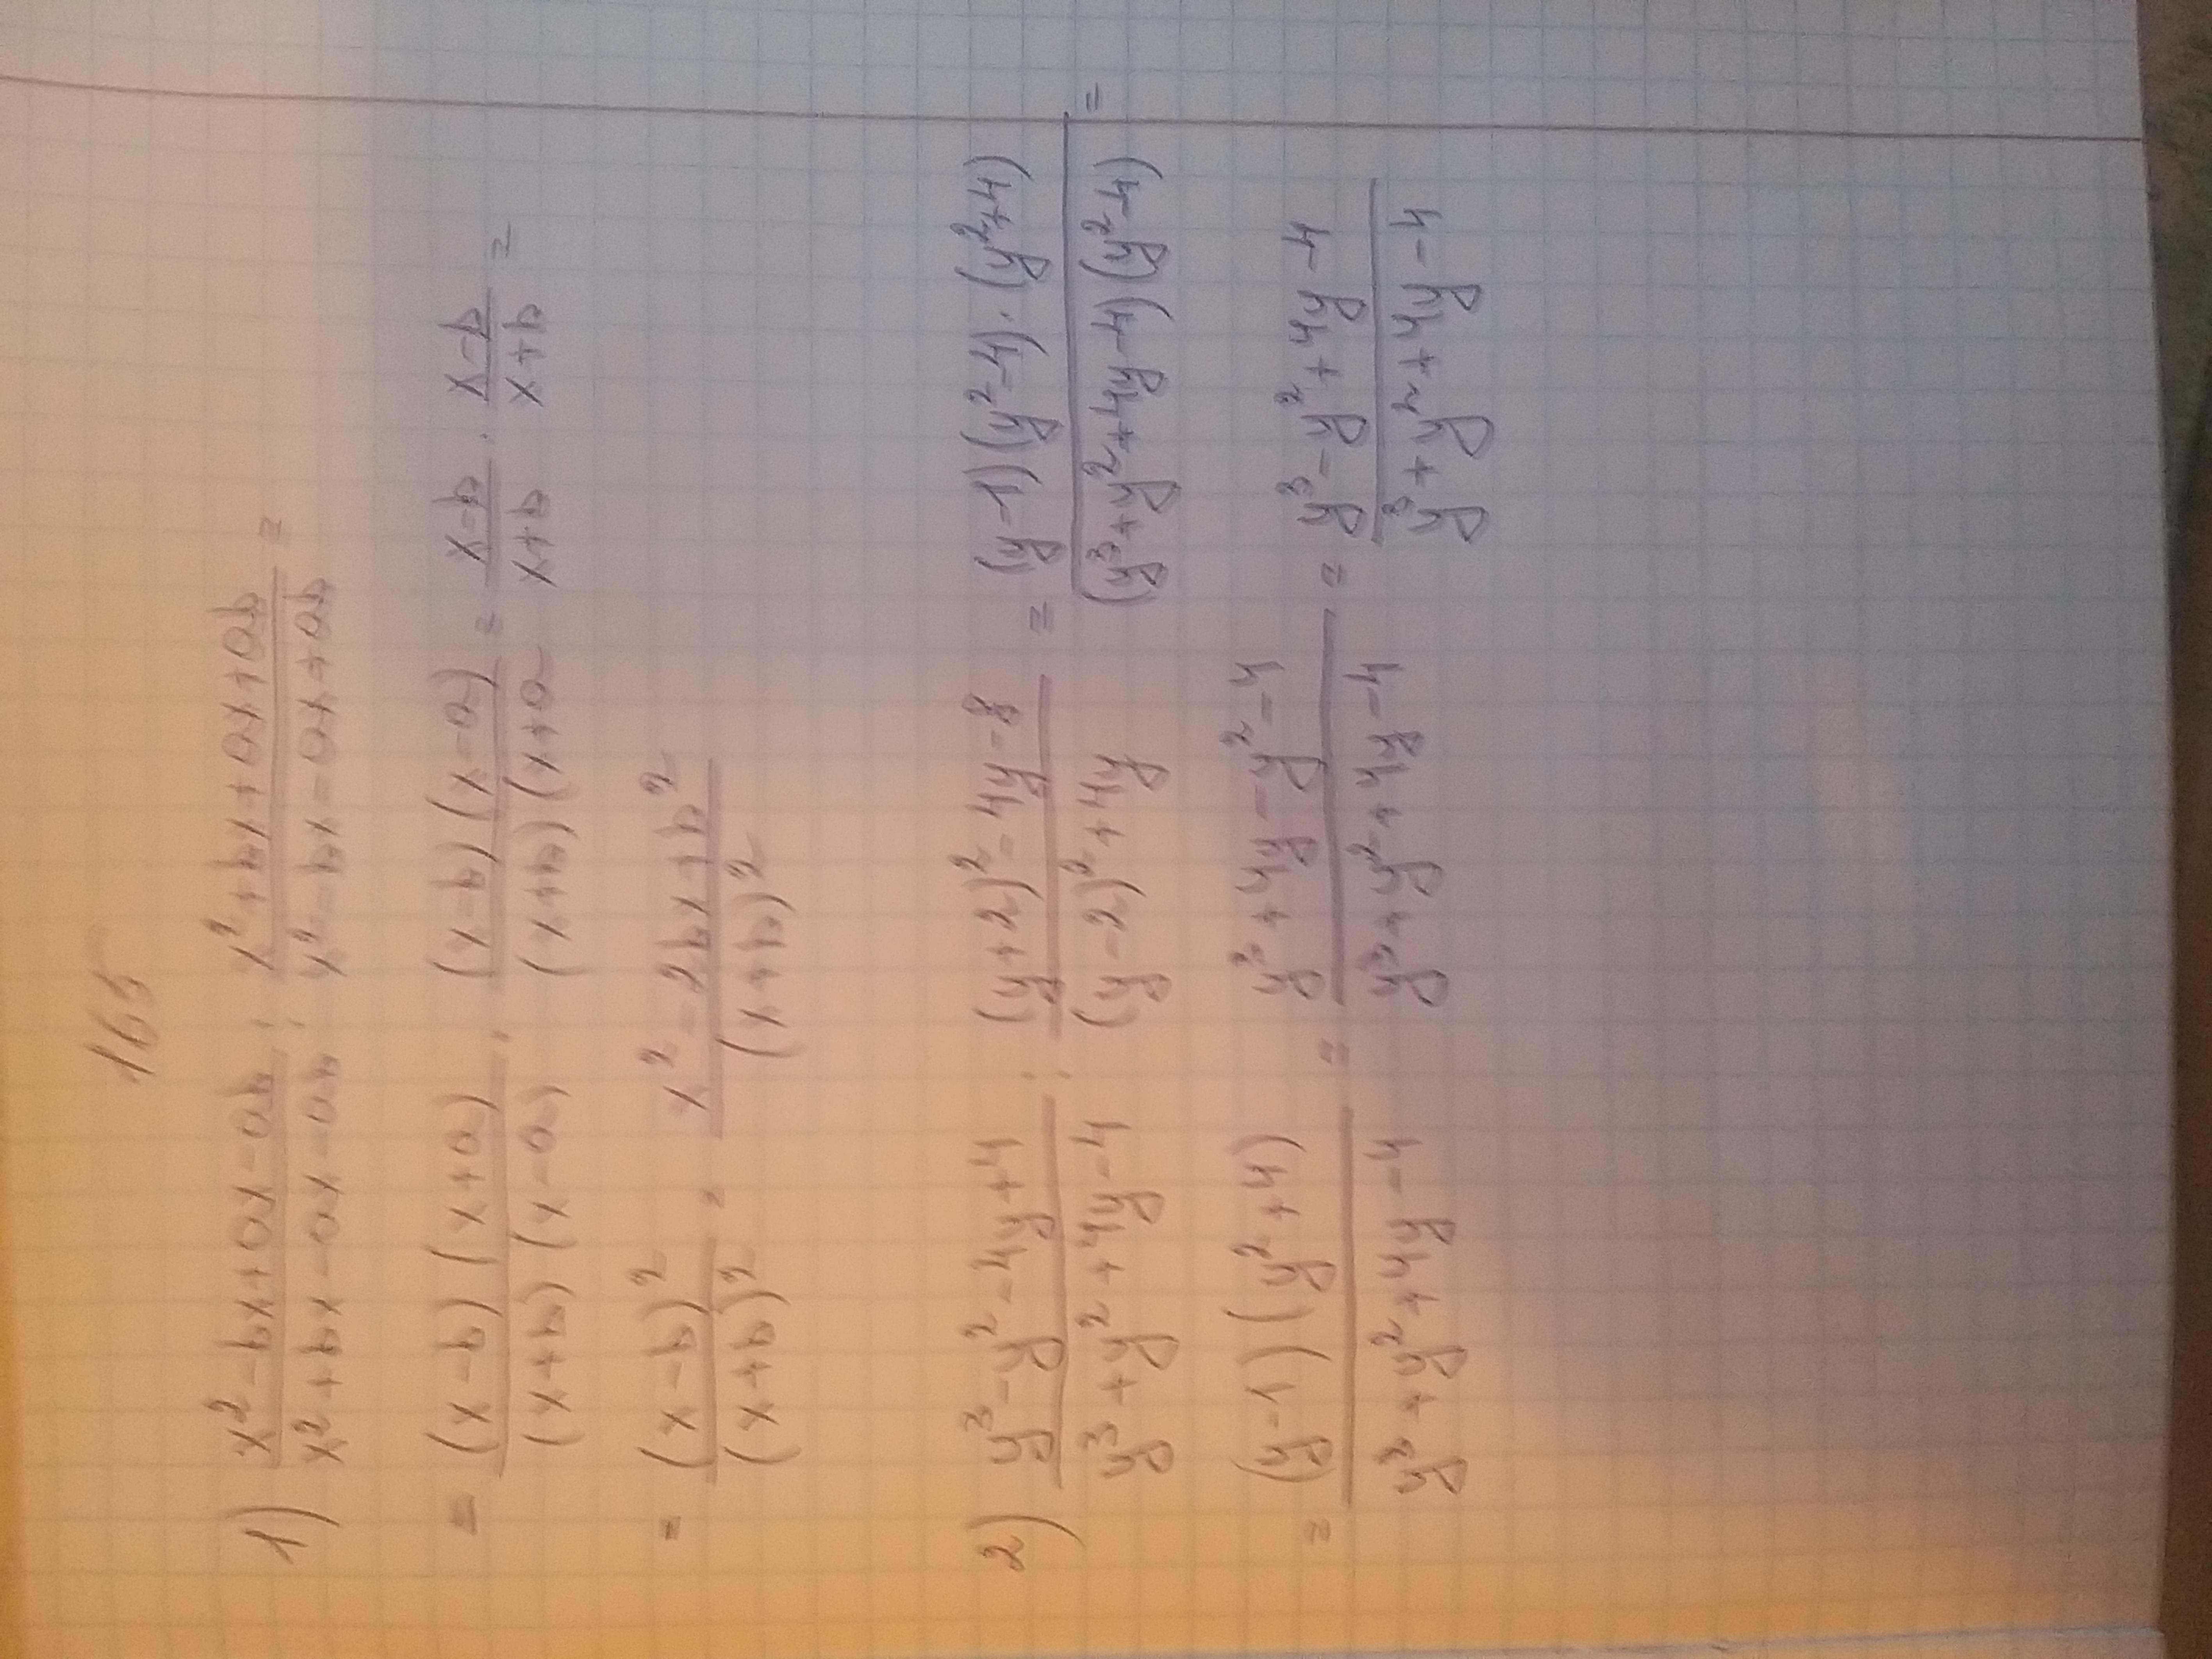 165
1) (x² - bx + ax - ab)/(x² + bx - ax - ab) : (x² + bx + ax + ab)/(x² - bx - ax + ab) =
= ((x - b)(x + a))/((x + b)(x - a)) · ((x - b)(x - a))/((x + b)(x + a) = (x - b)/(x + b) · (x - b)/(x + b) =
= (x - b)²/(x + b)² = (x² - 2bx + b²)/(x + b)²
2) (y³ - y² - 4y + 4)/(y³ + y² + 4y - 4) : ((y + 2)² - 4y - 8)/((y - 2)² + 4y) = ((y - 1)(y² - 4) · (y² + 4))/((y³ + y² + 4y - 4)(y² - 4)) =
= ((y - 1)(y² + 4))/(y³ + y² + 4y - 4) = (y³ + 4y - y² - 4)/(y³ + y² + 4y - 4) = (y³ - y² + 4y - 4)/(y³ + y² + 4y - 4)